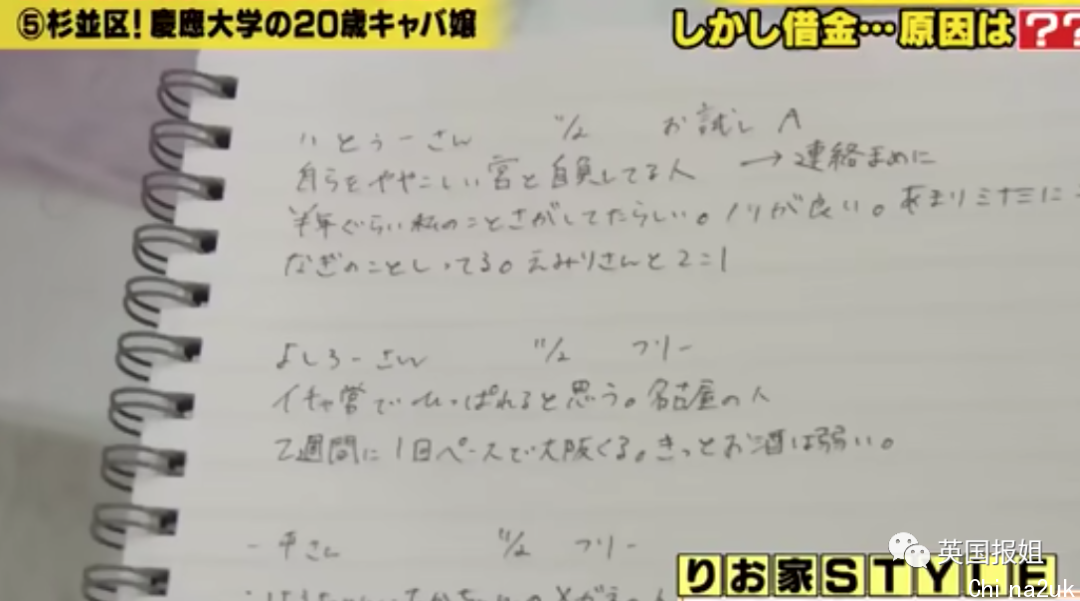 ⑤杉並区!慶應大学の20歳キャバ嬢
しかし借金…原因は??
いとうーさん 11/2 お試し A
自らをややこしい客と自負してる人 → 連絡まめに
半年ぐらい私のことさがしてたらしい。ノリが良い。あまりミナミに
なぎのことしってる。えみりさんと2:1
よしろーさん 11/2 フリー
イチャ営でひっぱれると思う。名古屋の人
2週間に1回ペースで大阪くる。きっとお酒は弱い。
一平さん 11/2 フリー
英国报姐
りお家STYLE
China2uk